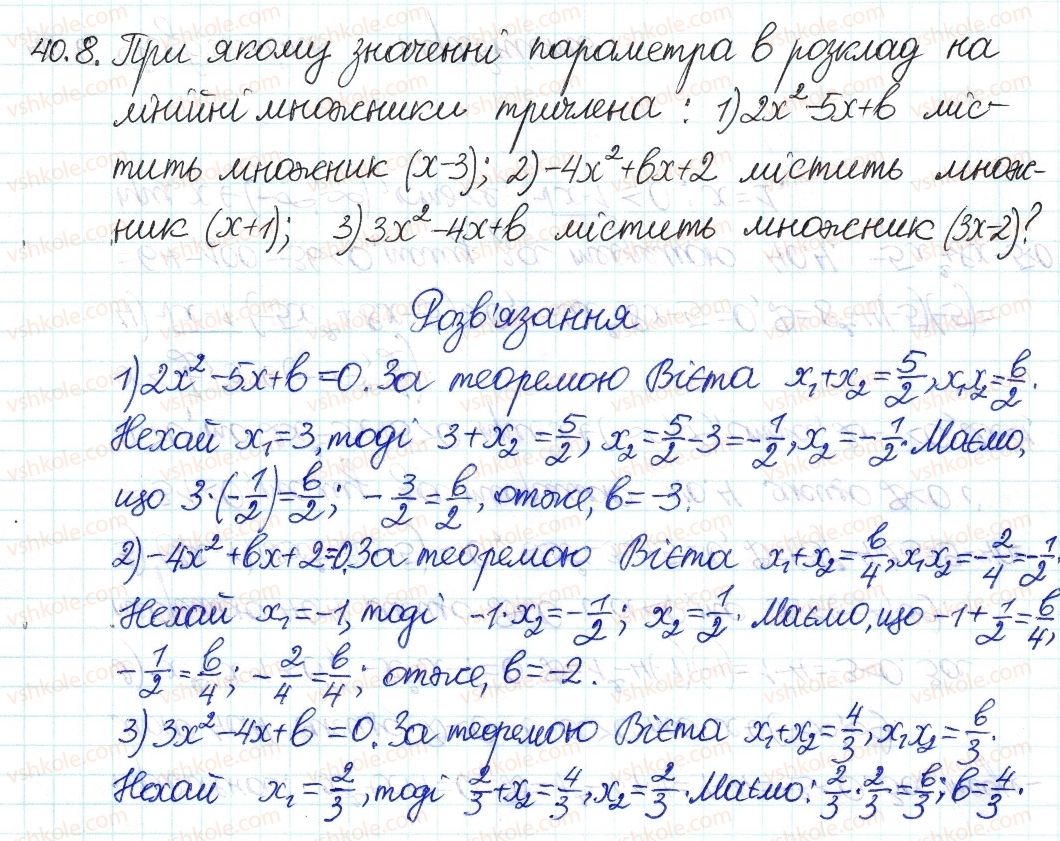 40.8. При якому значенні параметра в розклад на
лінійні множники тричлена : 1) 2x² -5x+в міс-
тить множник (x-3); 2) -4x²+вx+2 містить множ-
ник (x+1); 3) 3x²-4x+в містить множник (3x-2)?
Розв'язання
1) 2x² -5x+в=0. За теоремою Вієта x₁+x₂=5/2, x₁x₂=в/2.
Нехай x₁=3, тоді 3+x₂=5/2, x₂=5/2-3=-1/2, x₂=-1/2. Маємо,
що 3·(-1/2)=в/2; -3/2=в/2, отже, в=-3.
2) -4x²+вx+2=0. За теоремою Вієта x₁+x₂=в/4, x₁x₂=-2/4=-1/2.
Нехай x₁=-1, тоді -1·x₂=-1/2; x₂=1/2. Маємо, що -1+1/2=в/4,
-1/2=в/4; -2/4=в/4; отже, в=-2.
3) 3x²-4x+в=0. За теоремою Вієта x₁+x₂=4/3, x₁x₂=в/3.
Нехай x₁=2/3, тоді 2/3+x₂=4/3, x₂=2/3. Маємо: 2/3·2/3=в/3; в=4/3.